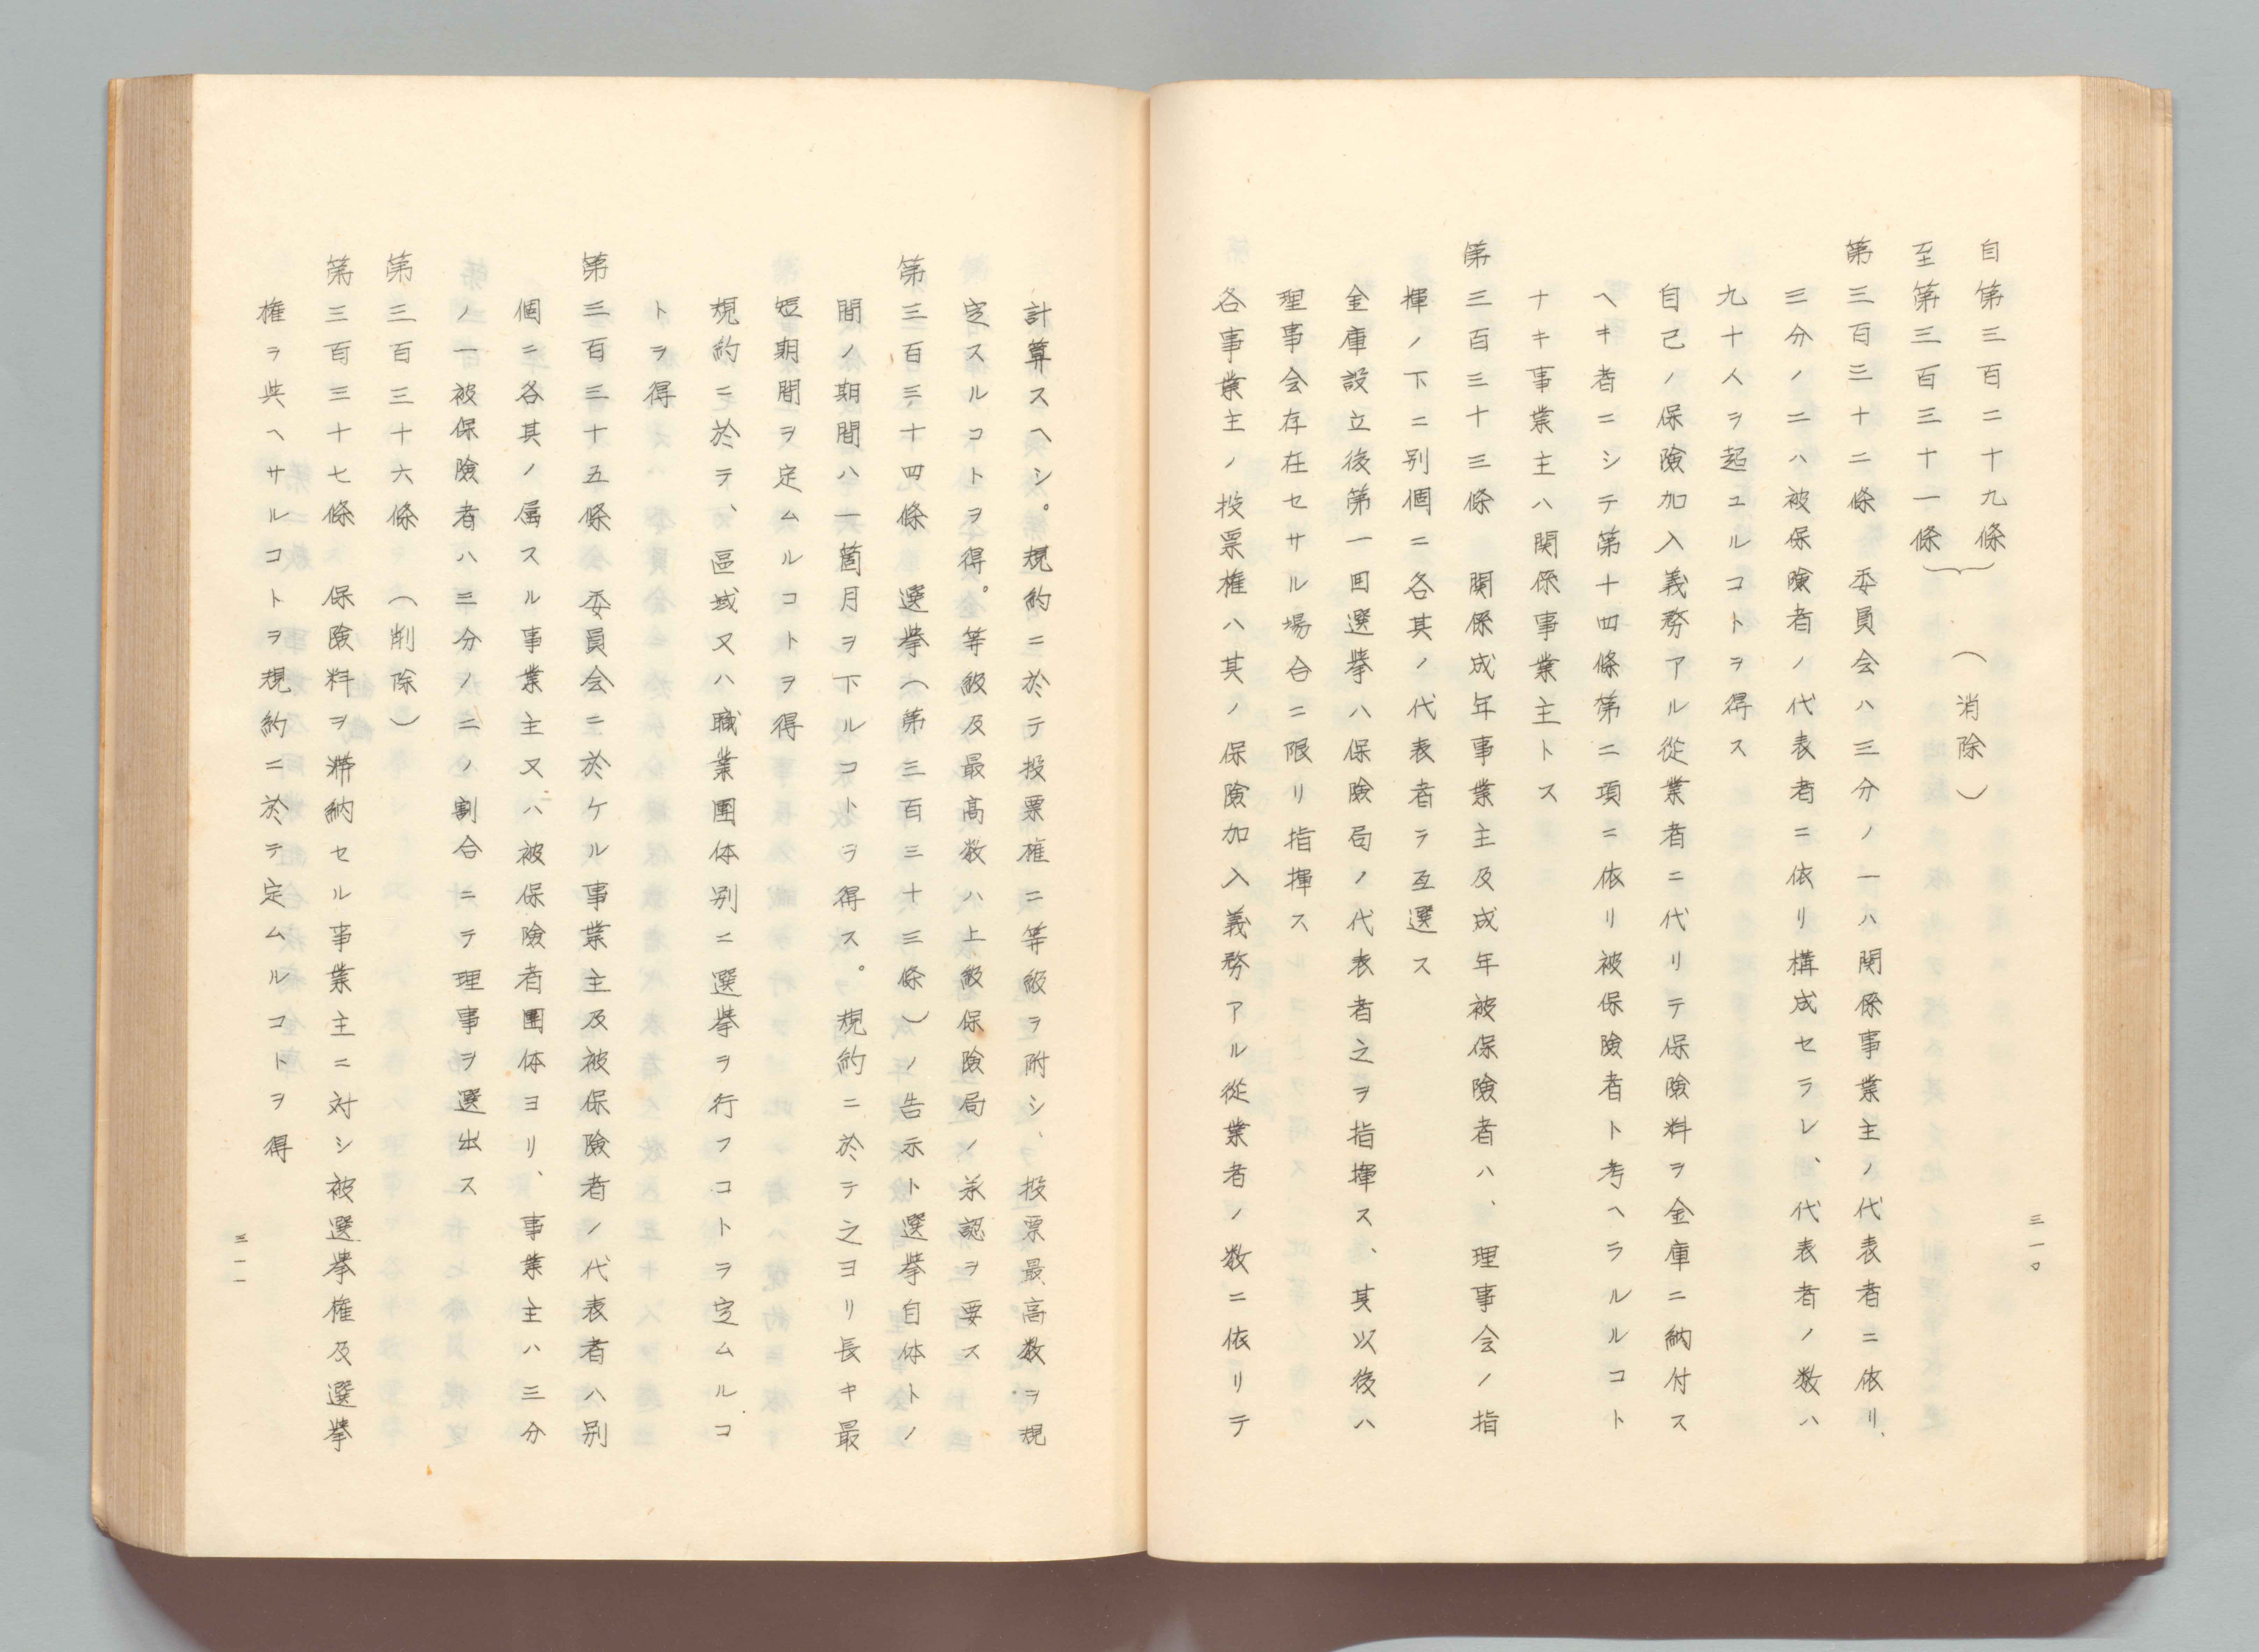 自第三百二十九條
至第三百三十一條
（消除）
第三百三十二條　委員会ハ三分ノ一ハ関係事業主ノ代表者ニ依リ、
三分ノ二ハ被保険者ノ代表者ニ依リ構成セラレ、代表者ノ数ハ
九十人ヲ超ユルコトヲ得ス
自己ノ保険加入義務アル從業者ニ代リテ保険料ヲ金庫ニ納付ス
ヘキ者ニシテ第十四條第二項ニ依リ被保険者ト考ヘラルルコト
ナキ事業主ハ関係事業主トス
第三百三十三條　関係成年事業主及成年被保険者ハ、理事会ノ指
揮ノ下ニ別個ニ各其ノ代表者ヲ互選ス
金庫設立後第一回選挙ハ保険局ノ代表者之ヲ指揮ス、其以後ハ
理事会存在セサル場合ニ限リ指揮ス
各事業主ノ投票権ハ其ノ保険加入義務アル從業者ノ数ニ依リテ
三一〇
計算スヘシ。規約ニ於テ投票権ニ等級ヲ附シ、投票最高数ヲ規
定スルコトヲ得。等級及最高数ハ上級保険局ノ承認ヲ要ス
第三百三十四條　選挙（第三百三十三條）ノ告示ト選挙自体トノ
間ノ期間ハ一箇月ヲ下ルコトヲ得ス。規約ニ於テ之ヨリ長キ最
短期間ヲ定ムルコトヲ得
規約ニ於テ、區域又ハ職業團体別ニ選挙ヲ行フコトヲ定ムルコ
トヲ得
第三百三十五條　委員会ニ於ケル事業主及被保険者ノ代表者ハ別
個ニ各其ノ属スル事業主又ハ被保険者團体ヨリ、事業主ハ三分
ノ一被保険者ハ三分ノ二ノ割合ニテ理事ヲ選出ス
第三百三十六條　（削除）
第三百三十七條　保険料ヲ滞納セル事業主ニ対シ被選挙権及選挙
権ヲ與ヘサルコトヲ規約ニ於テ定ムルコトヲ得
三一一